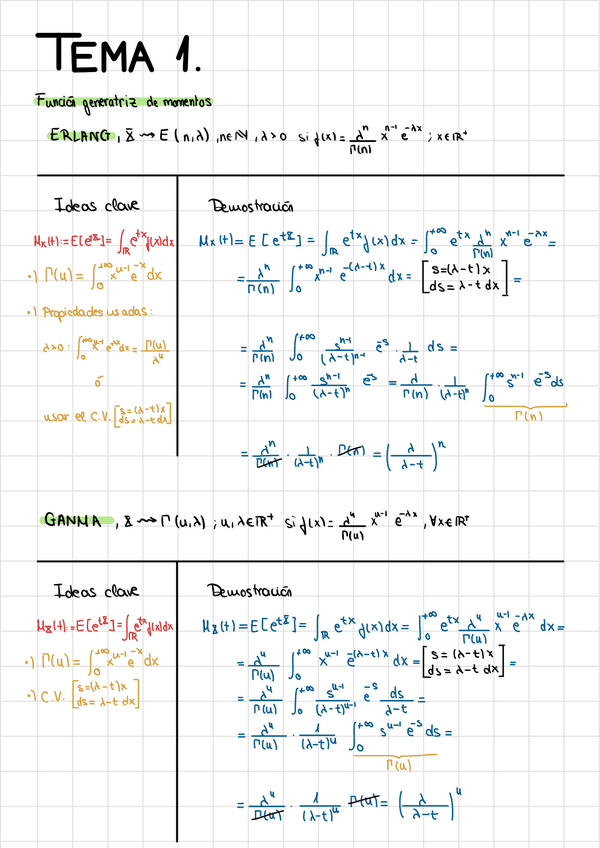 TEMA 1.
Función generatriz de momentos
ERLANG, X ⇝ E(n,λ), n∈ℕ, λ>0 si f(x) = λ^n/Γ(n) x^(n-1) e^(-λx) ; x∈ℝ⁺
Ideas clave
M_X(t) := E[e^(tX)] = ∫_ℝ e^(tx) f(x) dx
·) Γ(u) = ∫_0^(+∞) x^(u-1) e^(-x) dx
·) Propiedades usadas:
λ>0 : ∫_0^(+∞) x^(u-1) e^(-λx) dx = Γ(u)/λ^u
ó
usar el C.V. [s=(λ-t)x
ds=λ-t dx]
Demostración
M_X(t) = E[e^(tX)] = ∫_ℝ e^(tx) f(x) dx = ∫_0^(+∞) e^(tx) λ^n/Γ(n) x^(n-1) e^(-λx) =
= λ^n/Γ(n) ∫_0^(+∞) x^(n-1) e^(-(λ-t)x) dx = [s=(λ-t)x
ds=λ-t dx] =
= λ^n/Γ(n) ∫_0^(+∞) s^(n-1)/(λ-t)^(n-1) e^(-s) · 1/(λ-t) ds =
= λ^n/Γ(n) ∫_0^(+∞) s^(n-1)/(λ-t)^n e^(-s) = λ/Γ(n) · 1/(λ-t)^n ∫_0^(+∞) s^(n-1) e^(-s) ds
Γ(n)
= λ^n/Γ(n) · 1/(λ-t)^n · Γ(n) = (λ/(λ-t))^n
GANMA, X ⇝ Γ(u,λ) ; u,λ∈ℝ⁺ si f(x) = λ^u/Γ(u) x^(u-1) e^(-λx), ∀x∈ℝ⁺
Ideas clave
M_X(t) := E[e^(tX)] = ∫_ℝ e^(tx) f(x) dx
·) Γ(u) = ∫_0^(+∞) x^(u-1) e^(-x) dx
·) C.V. [s=(λ-t)x
ds=λ-t dx]
Demostración
M_X(t) = E[e^(tX)] = ∫_ℝ e^(tx) f(x) dx = ∫_0^(+∞) e^(tx) λ^u/Γ(u) x^(u-1) e^(-λx) dx =
= λ^u/Γ(u) ∫_0^(+∞) x^(u-1) e^(-(λ-t)x) dx = [s=(λ-t)x
ds=λ-t dx] =
= λ^u/Γ(u) ∫_0^(+∞) s^(u-1)/(λ-t)^(u-1) e^(-s) ds/(λ-t) =
= λ^u/Γ(u) · 1/(λ-t)^u ∫_0^(+∞) s^(u-1) e^(-s) ds =
Γ(u)
= λ^u/Γ(u) · 1/(λ-t)^u Γ(u) = (λ/(λ-t))^u